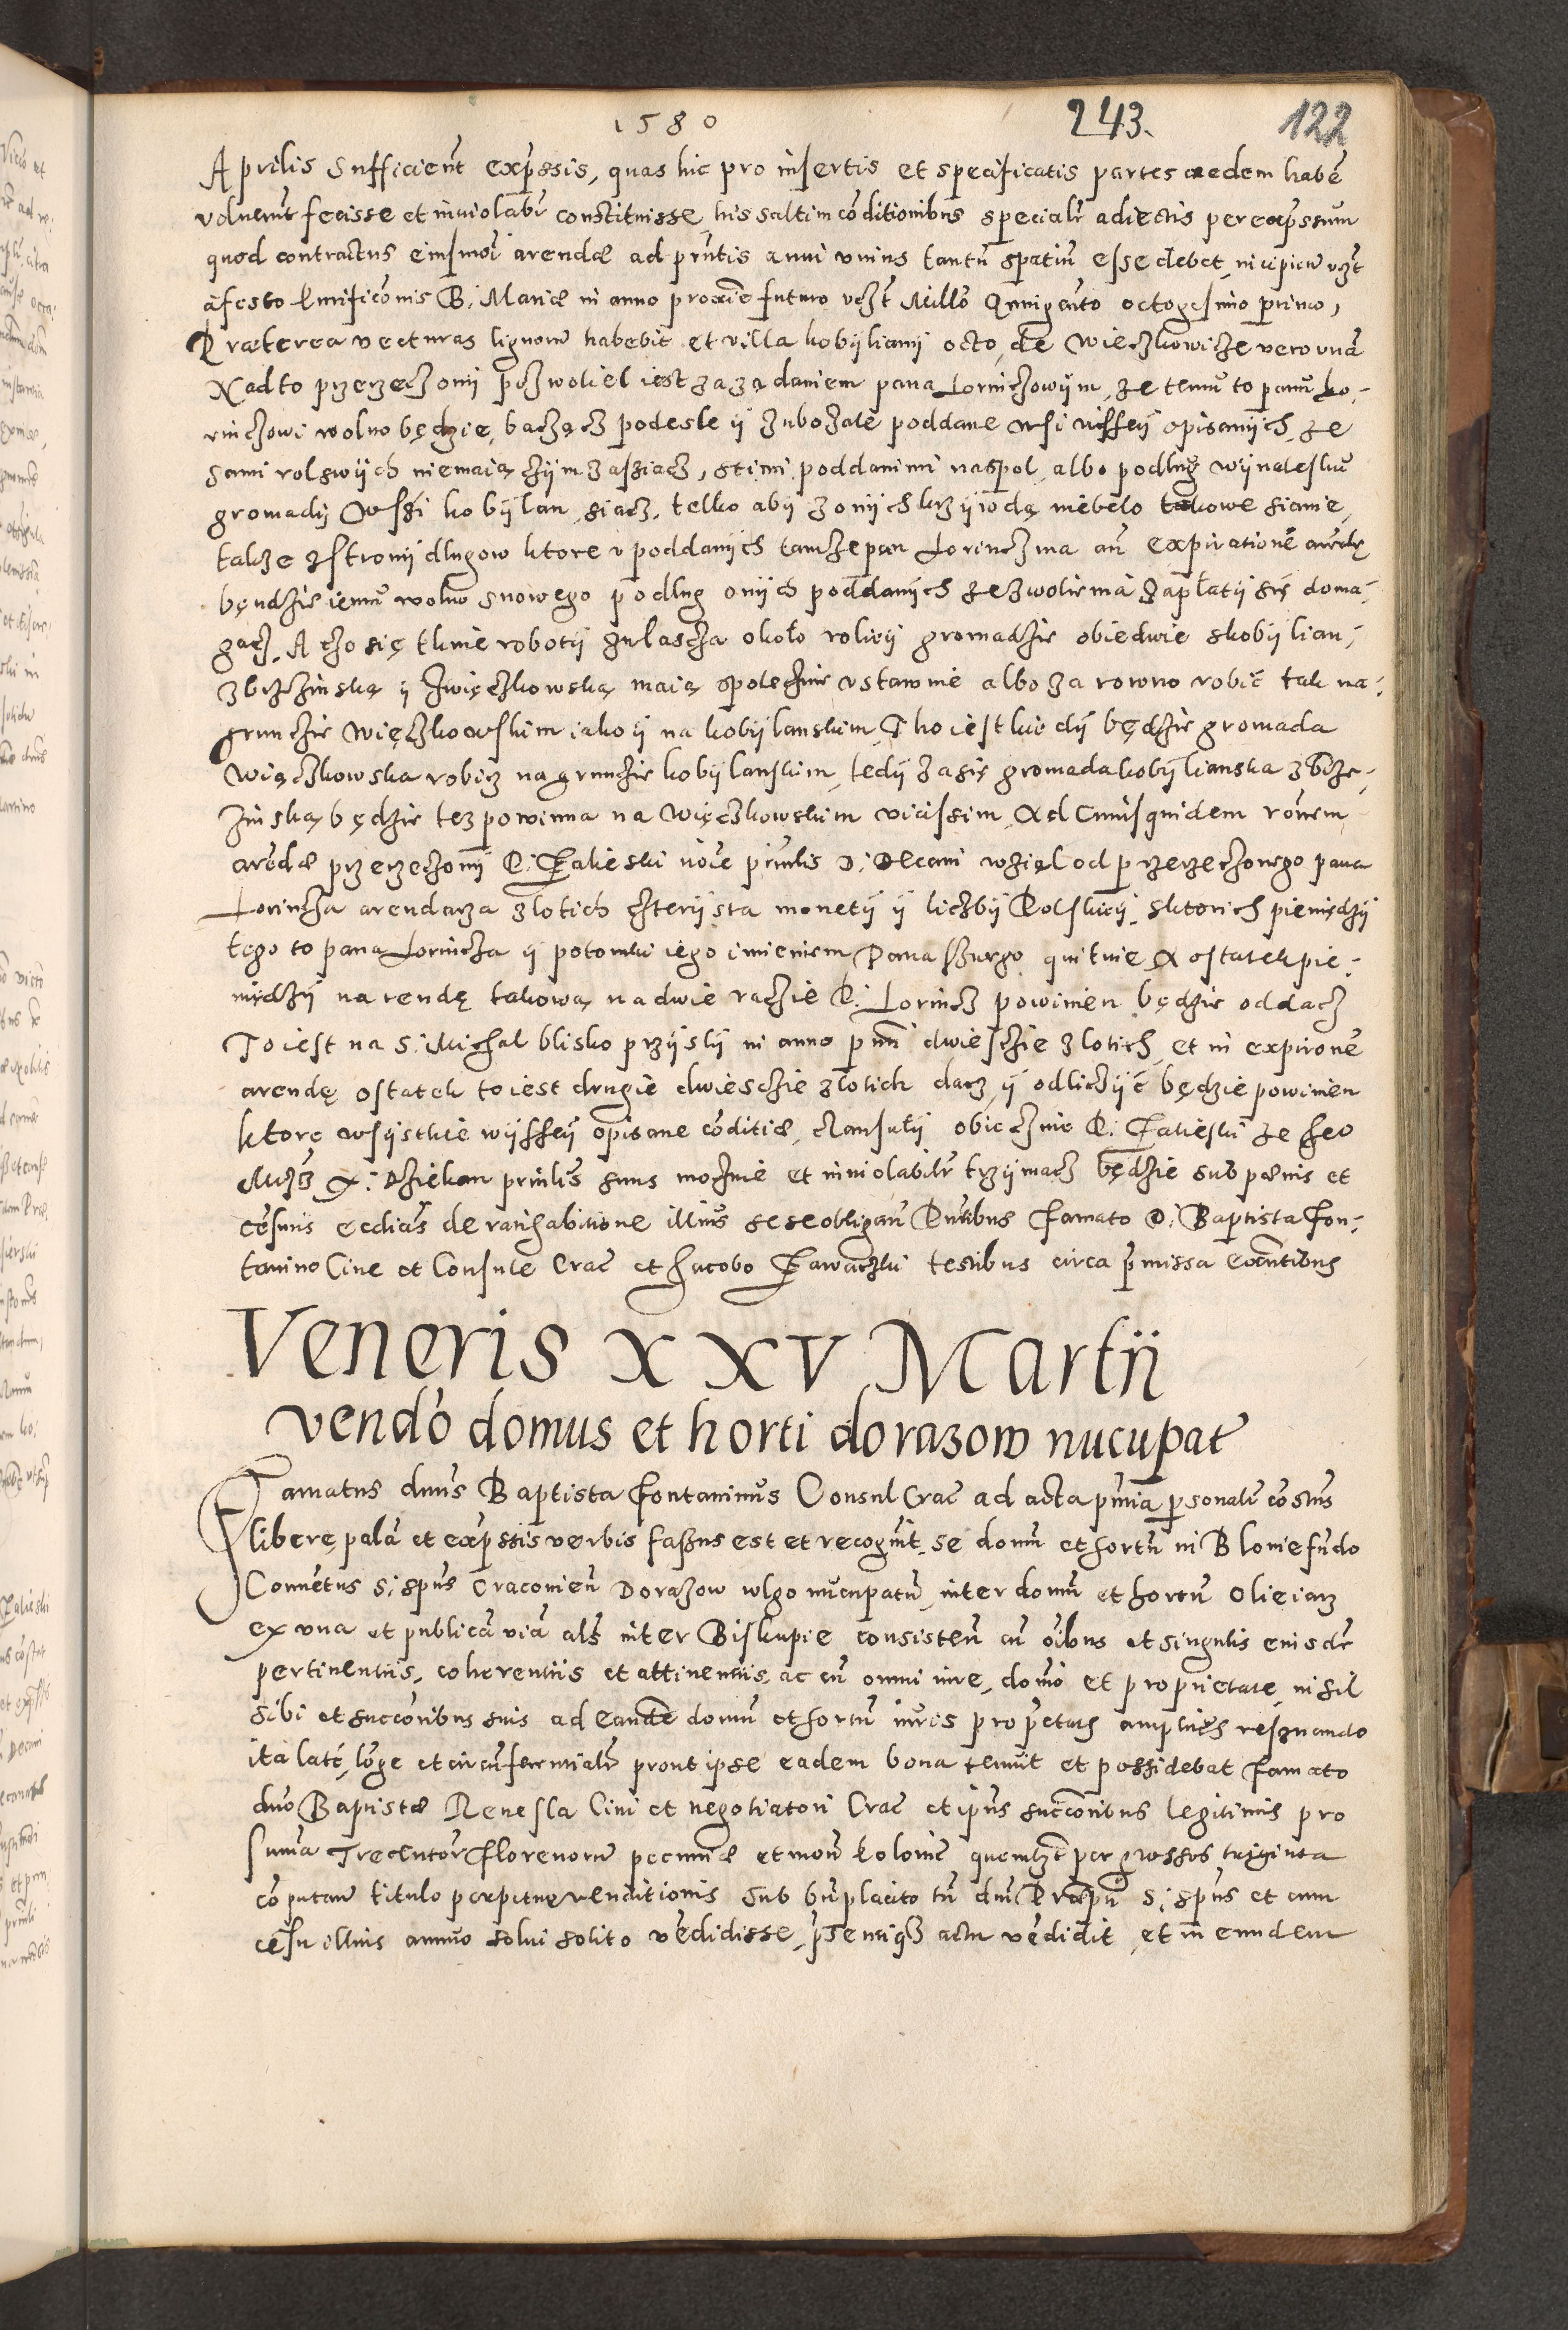 1580 243. 122
Aprilis Sufficient exp̄ssis, quas hic pro insertis et specificatis partes eaedem habē
voluerūt fecisse et inuiolabr̄ constituisse, his saltim cōditionibus specialr̄ adiectis per exp̄ssum
quod contractus eiusmōi arendæ ad pn̄tis anni vnius tantū spatiū esse debet, incipien̄ vzt̄
a festo Purificōnis B. Mariæ in anno proxie futuro vczt̄ Millō Quingento octogesimo primo,
Præterea vecturas lignorū habebit et villa kobÿlianÿ octo, de Wieczkowicze vero vnā
Nadto przerzeczonÿ pozwoliel iest za ządaniem pana Lorinczowÿm, ze temū to panū Lo,
rinczowi wolno będzie, bacząc podesłe ÿ zubozałe poddane wsi wÿsseÿ opisanÿch, ze
sami rol swÿch niemaią czÿm zassiacz, stimi poddanimi naspol, albo podlug wÿnalesku
gromadÿ Wsÿ kobÿlan, siacz, telko abÿ z onÿch krzÿwdą niebēlo takowe sianie,
takze z stronÿ dlugow ktore v poddanÿch tamze pan Lorincz ma an̄ expirationē arendę
będzie iemū wolno snowego podlug onÿch poddanÿch zezwolienia zapłatÿ się doma,
gacz. A czo się tknie robotÿ zwlascza około roliēÿ gromadzie obiedwie skobÿlian,
zbrzezinską ÿ Zwięczkowską maią społecznie vstawnie albo za rowno robić tak na,
gruncie Więczkowskim iako ÿ na kobÿlanskim, Tho iest kiedÿ będzie gromada
Więczkowska robicz na gruncie kobÿlanskim, tedÿ zasię gromada kobÿlianska z brze,
zinską będzie tez powinna na Więczkowskim vicissim, Ad Cuius quidem rōnem
arēdæ przerzeczonÿ P. Zalieski nōie D. Decani wziął od przerzeczonego pana
Lorincza arendarza złotich czterÿsta monetÿ ÿ liczbÿ Polskieÿ, sktorich pieniędzÿ
tego to pana Lorincza ÿ potomki iego imieniem Pana swego quituie A ostatek pie,
niędzÿ na rendę takową na dwie racie P. Lorincz powinien będzie oddacz
To iest na S. Michal blisko przÿslÿ in anno pn̄ti dwiesczie złotich, et in expirōne
arendę ostatek to iest drugie dwiesczie złotich dacz ÿ odliczÿć będzie powinien
ktore wsÿstkie wÿsseÿ opisane cōditiæ, clausułÿ obiecznie P. Zalieski ze Jeo
Mcz X. Dziekan suus mocznie et inuiolabilr̄ trzÿmacz będzie sub pœnis et
cēsuris ecclīas de ratihabitione illius sese obligan̄ Pn̄tibus famato D. Baptista Fon,
tanino Ciue et Consule Crac̄ et Jacobo Zawaczki testibus circa p̄missa exn̄tibus
Veneris XXV Martÿ
vendō domus et horti dorazow nūcupat
Famatus dn̄us Baptista Fontaninus Consul Crac̄ ad acta pn̄tia p̄sonalr̄ cōstus
libere, palā et exp̄ssis verbis fassus est et recognit, se domū et hortū in Blonie fūdo
Conuētus S. Spūs Cracouien̄ Dorazow vulgo nūcupatū, inter domū et hortū Olieiarz
ex vna et publicā viā als̄ inter Biskupie consisten̄ cū oībus et singulis eiusdē
pertinentiis, coherentiis et attinentiis, ac cū omni iure, domō et proprietate, nihil
sibi et succōribus suis ad eandē domū et hortū iuris proprietatis amplius reseruando
ita latē, lōge et circūferentialr̄ prout ipse eadem bona tenuit et possidebat famato
dn̄o Baptistæ Renesla Ciui et negotiatori Crac̄ et ipsius succōribus legitimis pro
summa Trecentor̄ Florenorū pecuniæ et mon̄ Polonic̄ quemlzt̄ per grossos triginta
cōputan̄ titulo perpetuę venditionis sub bn̄placito tn̄ dn̄i Præpti S. Spūs et cum
cēsu illius annuo solui solito vēdidisse, p̄sentiqȝ actu vēdidit, et in eundem